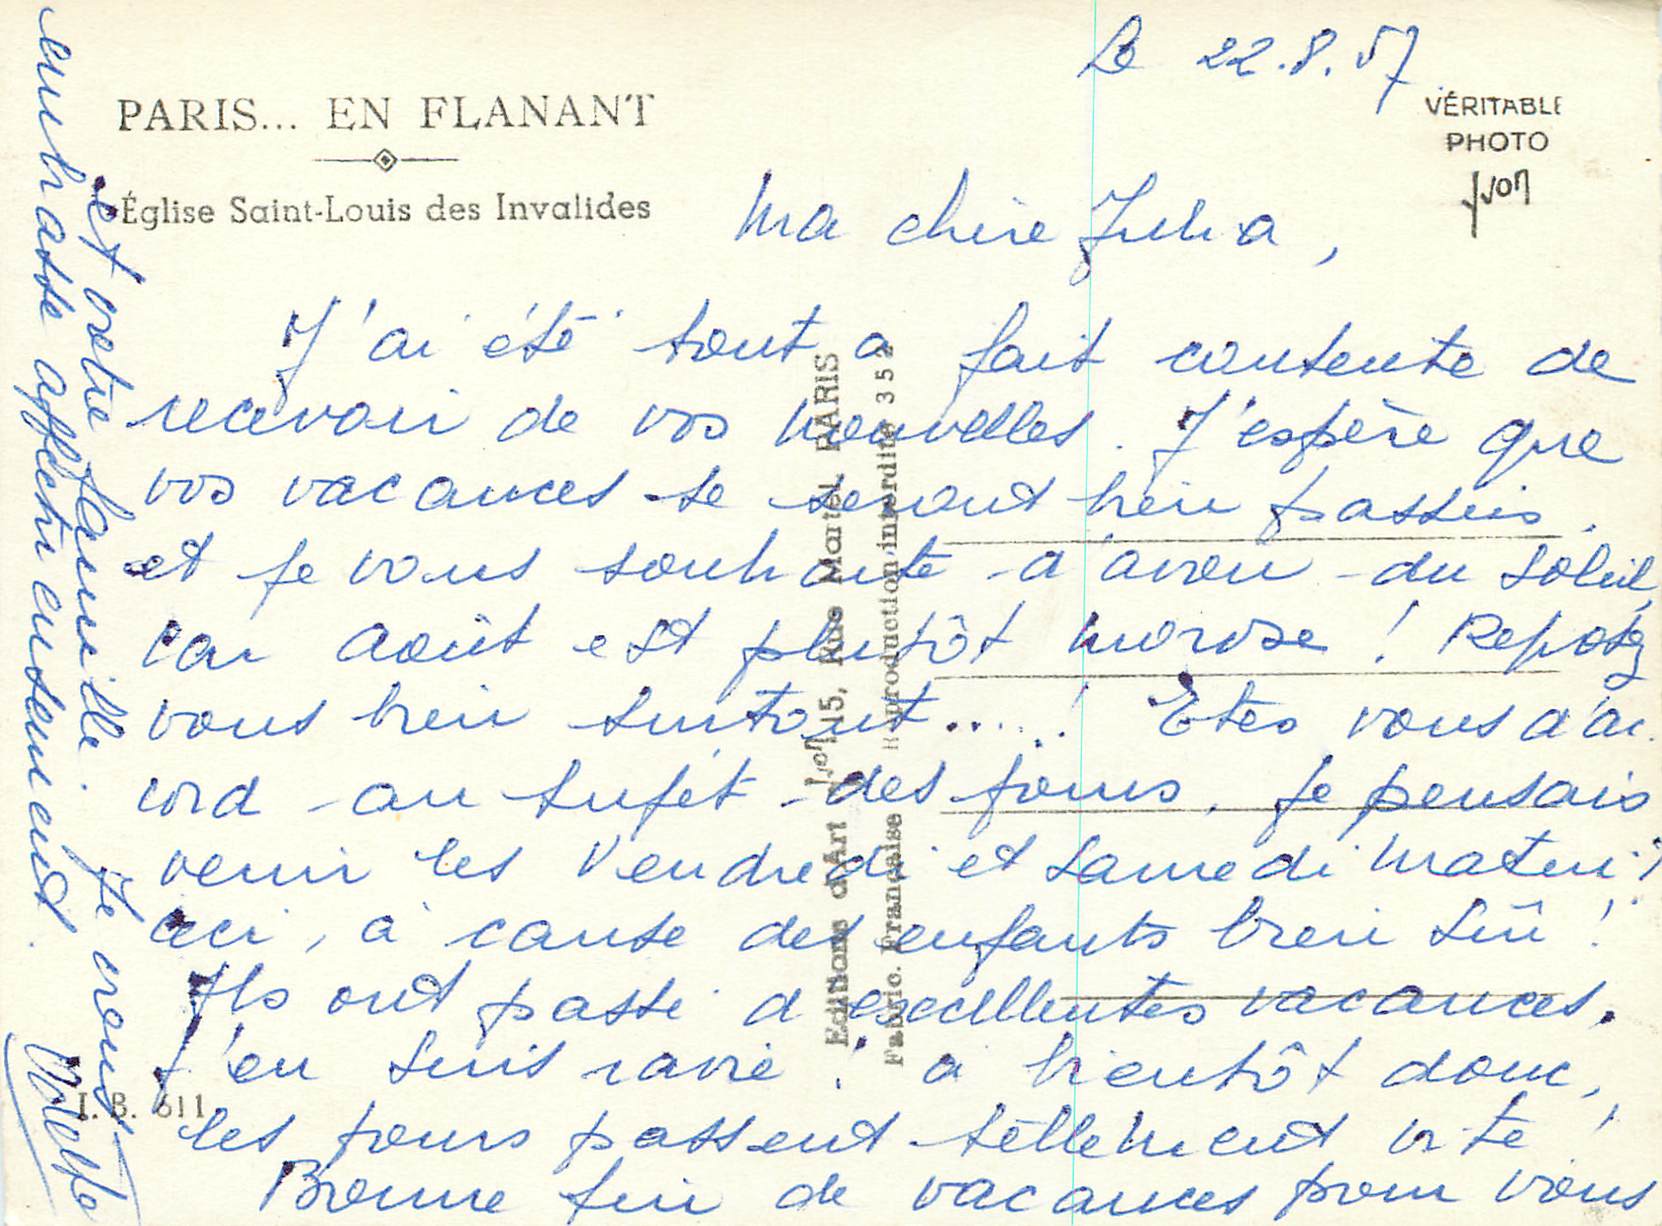 Le 22.8.57
PARIS... EN FLANANT
Église Saint-Louis des Invalides
VÉRITABLE
PHOTO
Yvon
Ma chère Julia,
J'ai été tout a fait contente de
recevoir de vos nouvelles. J'espère que
vos vacances se seront bien passées.
et je vous souhaite d'avoir du soleil,
car août est plutôt morose ! Reposez
vous bien surtout.....! Etes vous d'ac.
cord au sujet des jours, je pensais
venir les Vendredi et Samedi matin ?
ceci, à cause des enfants bien sûr !
Ils ont passé d'excellentes vacances.
J'en suis ravie ! à bientôt donc,
les jours passent tellement vite !
Bonne fin de vacances pour vous
et votre famille. Je vous
embrasse affectueusement.
Editions d'Art Yvon, 15, Rue Martel, PARIS
Fabric. Française Reproduction interdite 352
I. B. 611